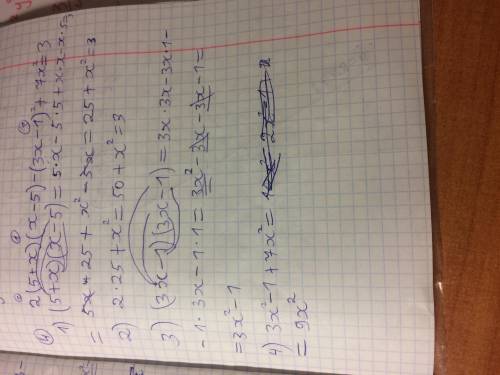 ④ 2(5+x)(x-5)-(3x-1)²+7x²=3
1) (5+x)(x-5)=5·x-5·5+x·x-x·5=
= 5x+25+x²-5x=25+x²=3
2) 2·25+x²=50+x²=3
3) (3x-1)(3x-1)=3x·3x-3x·1-
-1·3x-1·1=3x²-3x-3x-1=
=3x²-1
4) 3x²-1+7x²=
=9x²